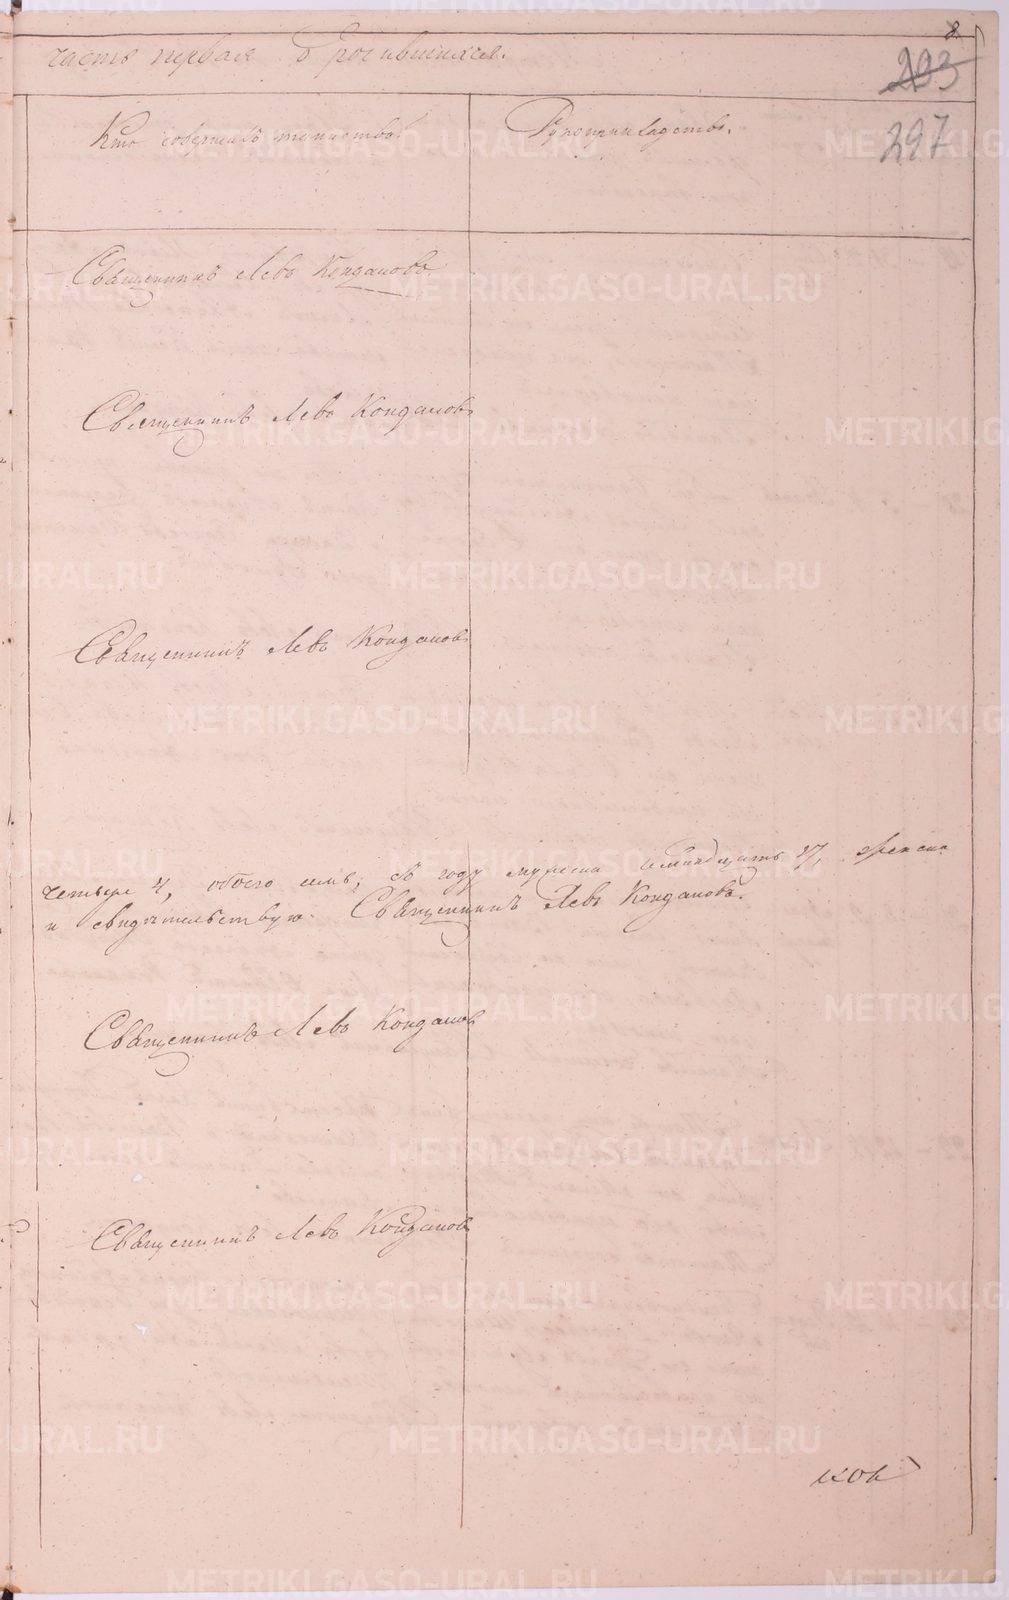 8.
часть первая о родившихся.
293
Кто совершалъ таинства
Рукоприкладство.
297
Священникъ Левъ Кондаковъ.
Священникъ Левъ Кондаковъ
Священникъ Левъ Кондаковъ
четыре 4, обоего семь; въ году мужеска семнадцать 17, женска
и свидѣтельствую. Священникъ Левъ Кондаковъ.
Священникъ Левъ Кондаковъ
Священникъ Левъ Кондаковъ
METRIKI.GASO-URAL.RU